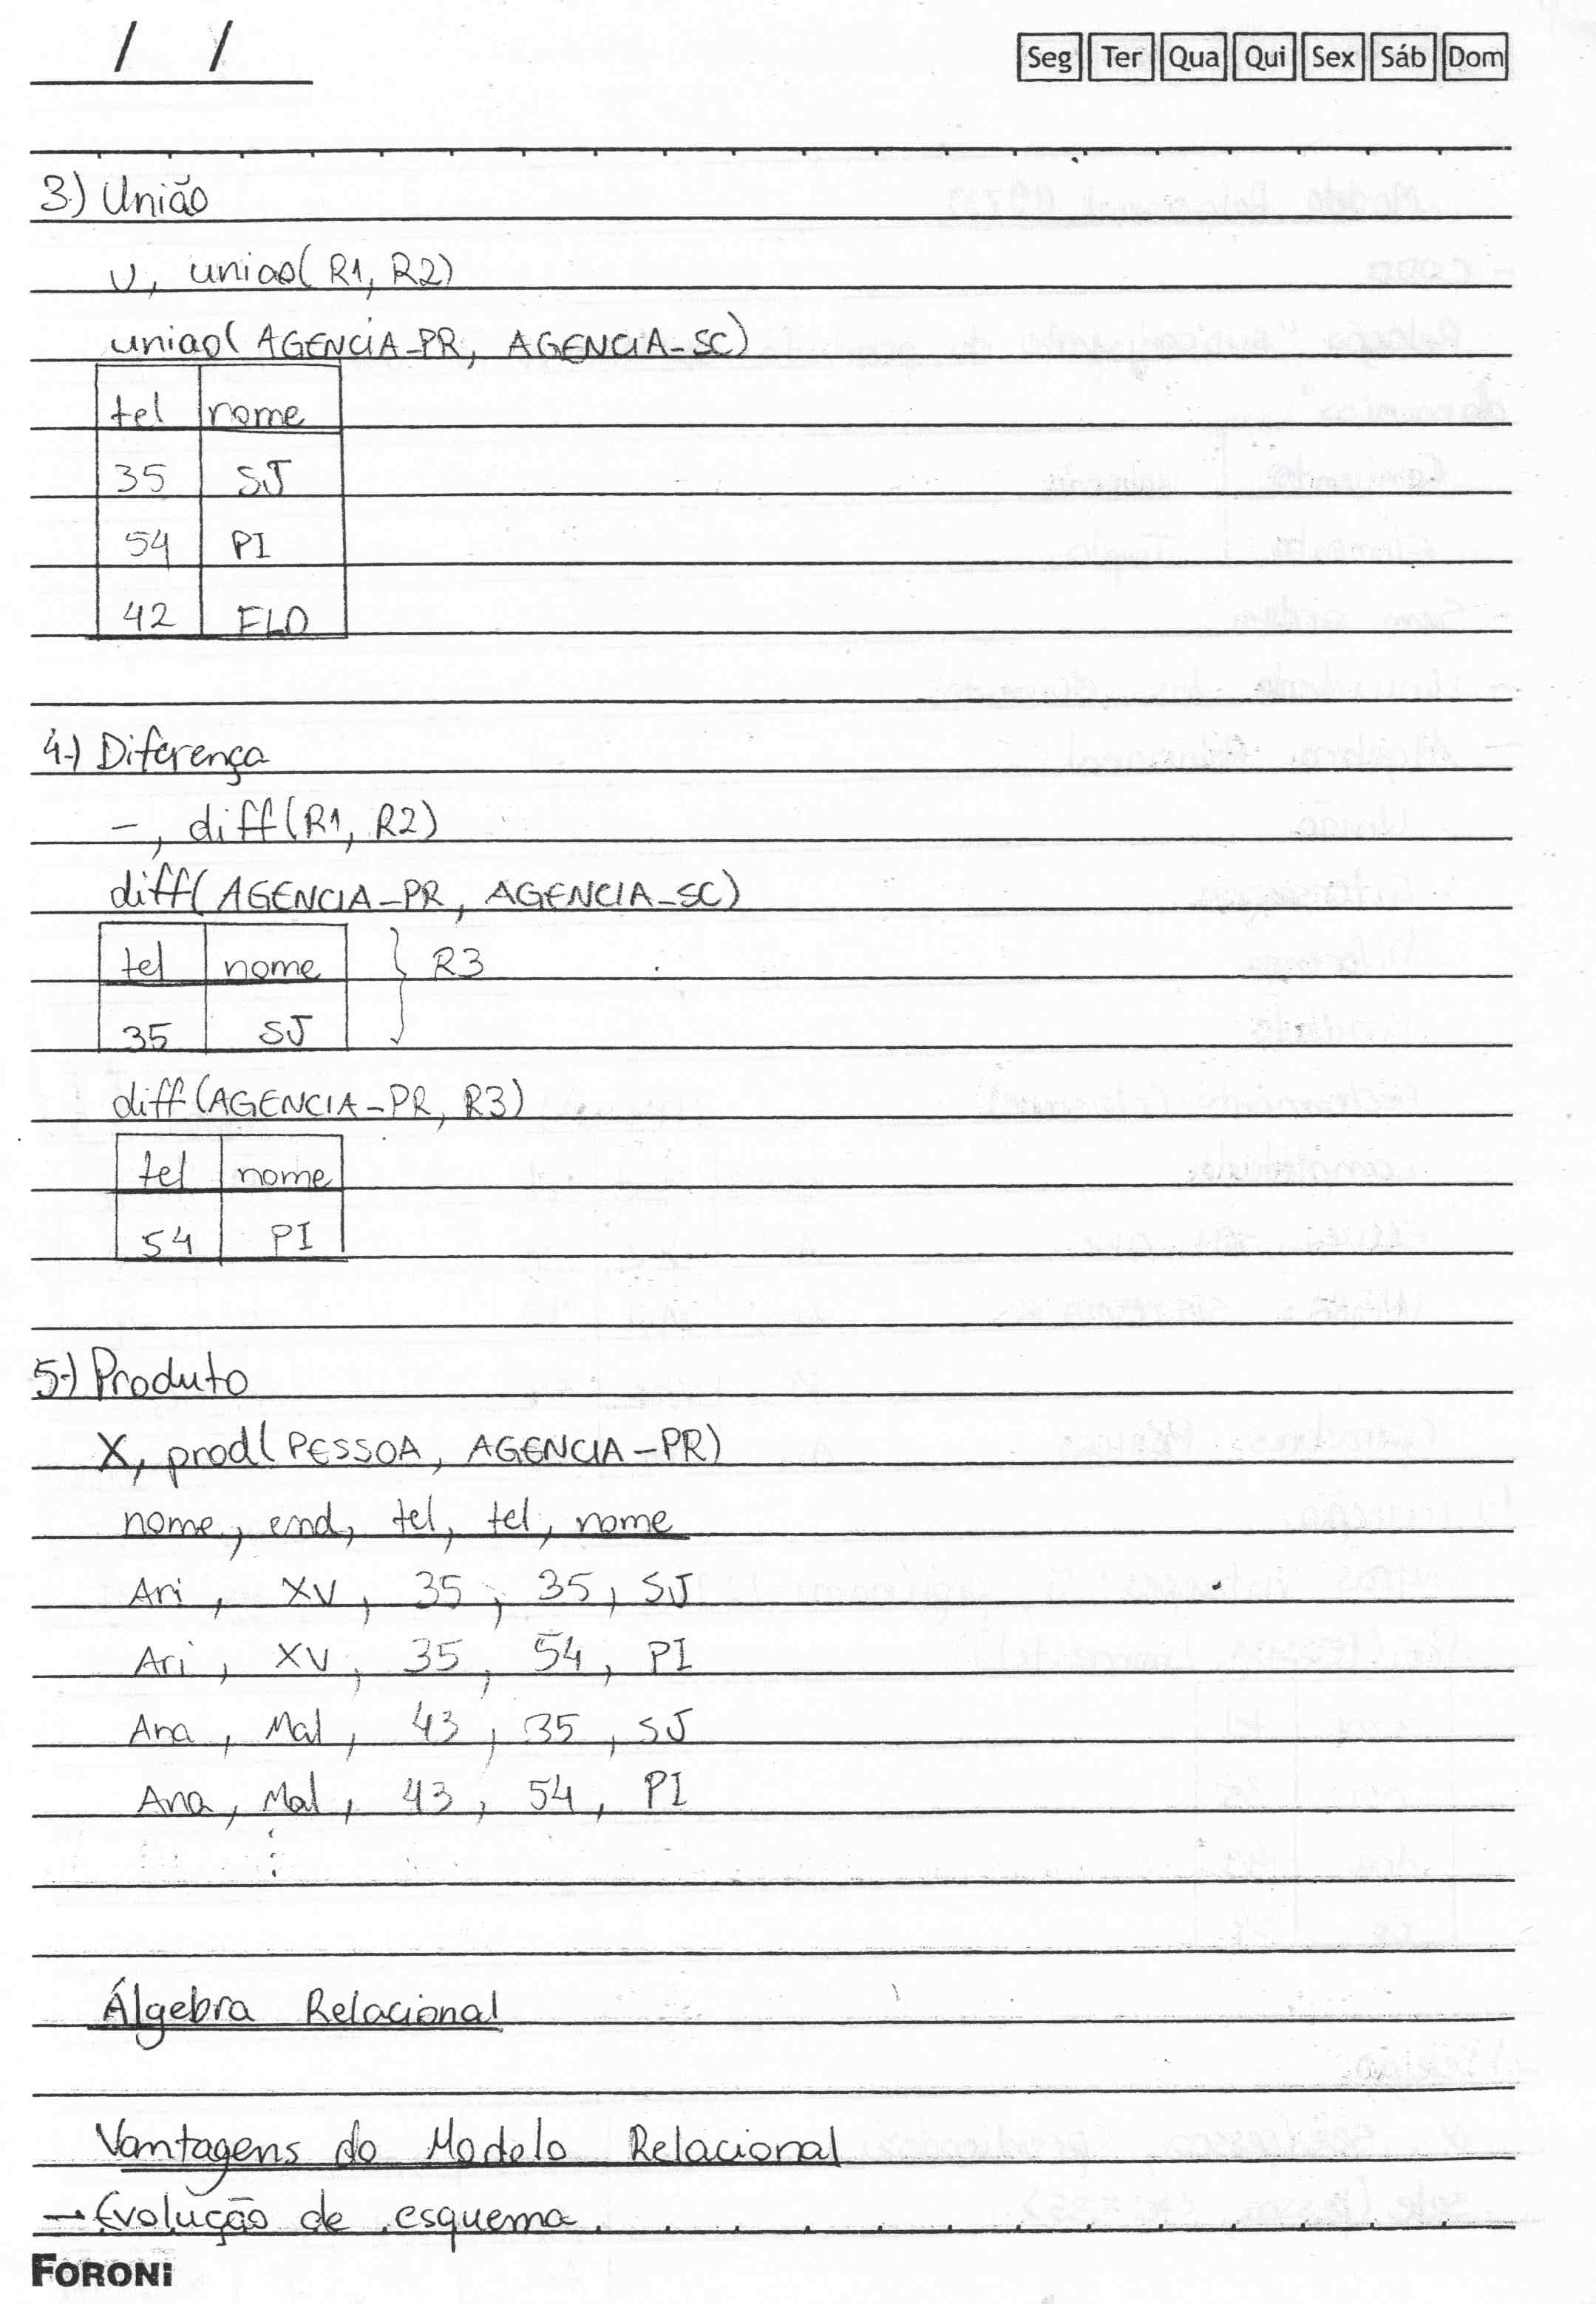 / /
Seg Ter Qua Qui Sex Sáb Dom
3-) União
U, uniao(R1, R2)
uniao(AGENCIA-PR, AGENCIA-SC)
tel nome
35 SJ
54 PI
42 FLO
4-) Diferença
-, diff(R1, R2)
diff(AGENCIA-PR, AGENCIA-SC)
tel nome } R3
35 SJ
diff(AGENCIA-PR, R3)
tel nome
54 PI
5-) Produto
X, prod(PESSOA, AGENCIA-PR)
nome, end, tel, tel, nome
Ari, XV, 35, 35, SJ
Ari, XV, 35, 54, PI
Ana, Mal, 43, 35, SJ
Ana, Mal, 43, 54, PI
⋮
Álgebra Relacional
Vantagens do Modelo Relacional
- Evolução de esquema
FORONI